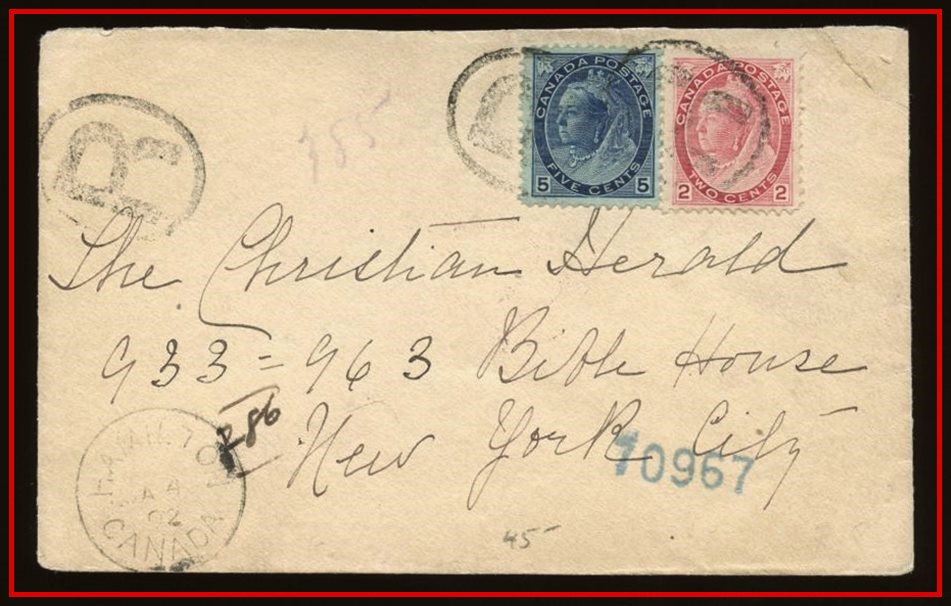 R
355
CANADA POSTAGE
5 FIVE CENTS 5
CANADA POSTAGE
2 TWO CENTS 2
The Christian Herald
933=963 Bible House
New York City
286
70967
HAMILTON
JA 4
02
CANADA
45